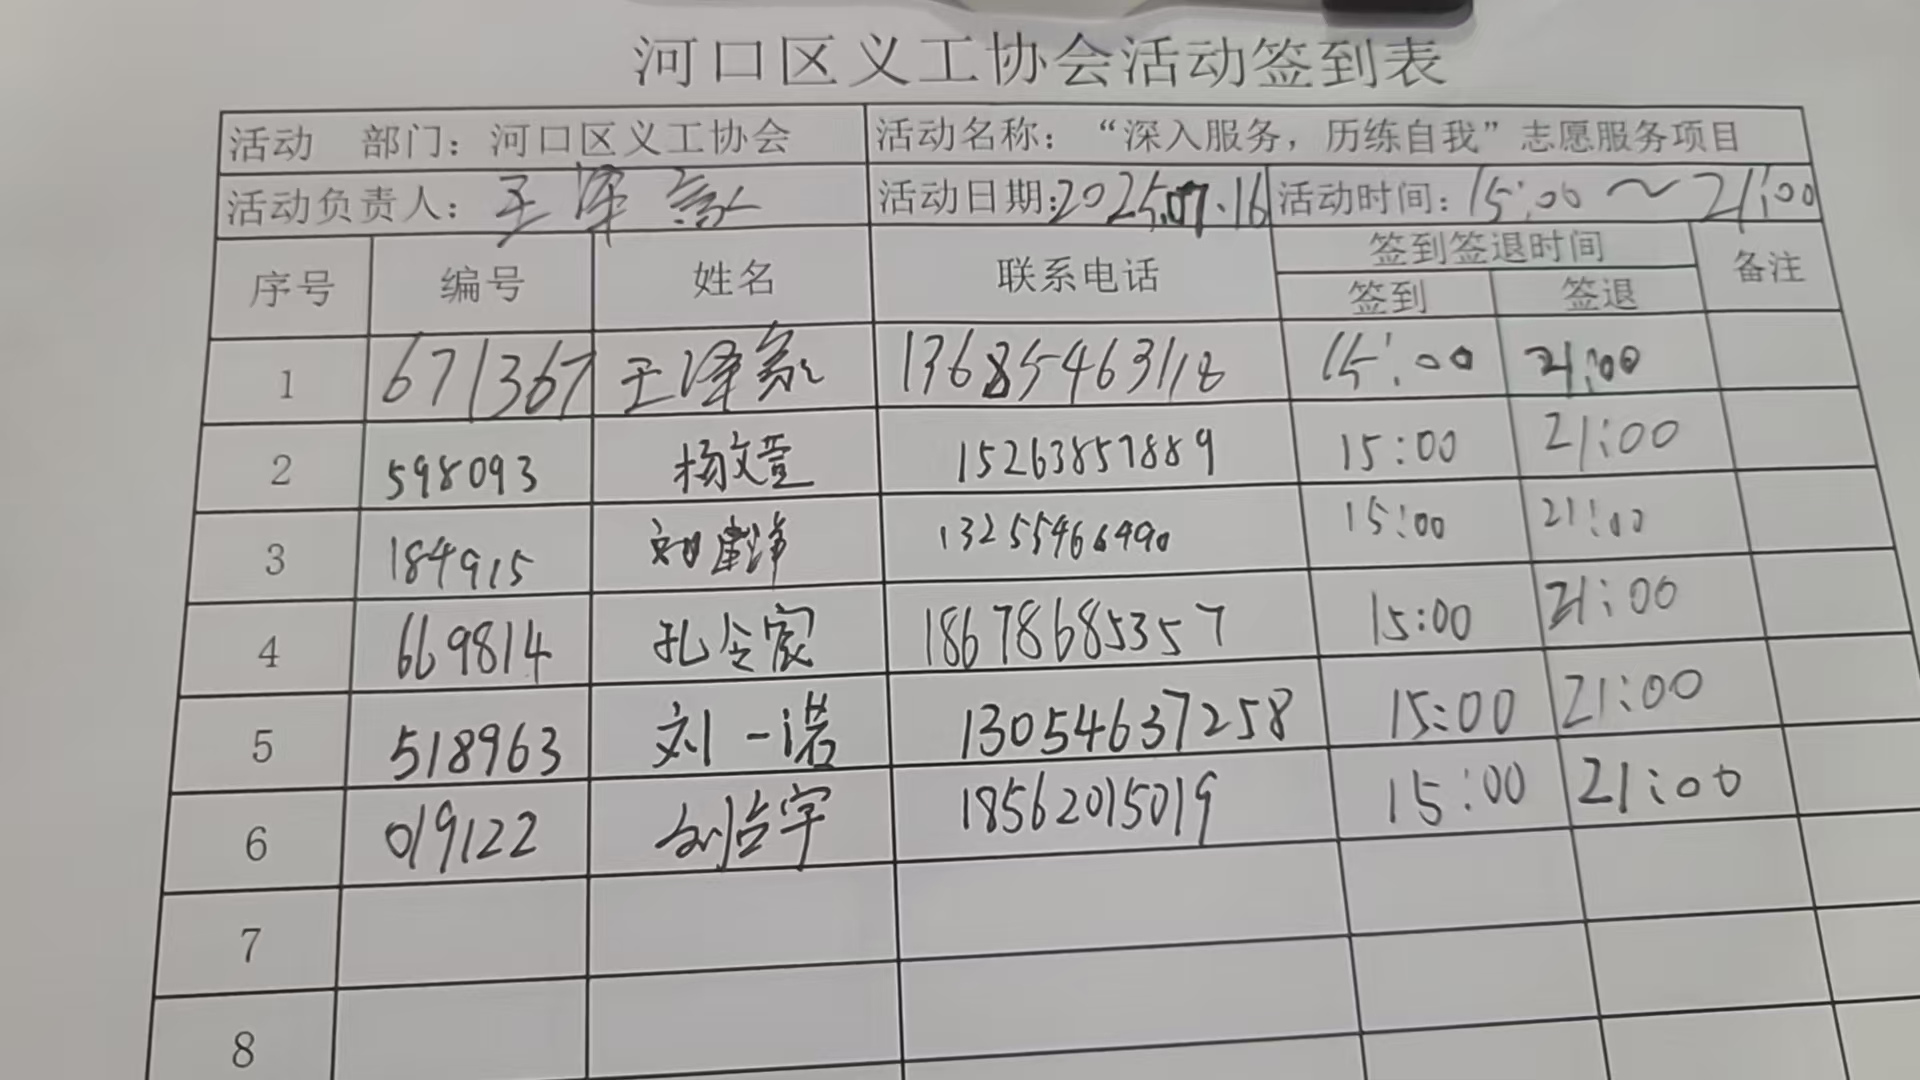 河口区义工协会活动签到表
活动 部门：河口区义工协会 活动名称：“深入服务，历练自我”志愿服务项目
活动负责人：王泽 活动日期：2025.07.16 活动时间：15:00～21:00
序号 编号 姓名 联系电话 签到签退时间 备注
签到 签退
1 671367 王泽 13685463118 15:00 21:00
2 598093 杨文萱 15263857889 15:00 21:00
3 184915 刘 13255466490 15:00 21:00
4 669814 孔令宸 18678685357 15:00 21:00
5 518963 刘一诺 13054637258 15:00 21:00
6 019122 刘占宇 18562015019 15:00 21:00
7
8